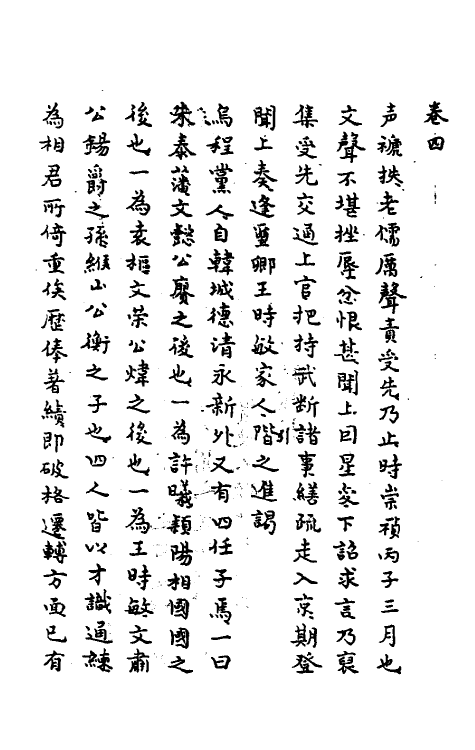 卷四
声褫抶老儒厲聲責受先乃止時崇禎丙子三月也
文聲不堪挫辱忿恨甚聞上因星变下詔求言乃裒
集受先交通上官把持武断諸事繕疏走入京期登
聞上奏逢璽卿王時敏家人階之進謁
引
烏程黨人自韓城德清永新外又有四任子馬一曰
朱泰藩文懿公賡之後也一為許曦穎陽相國國之
後也一為袁樞文荣公煒之後也一為王時敏文肅
公錫爵之孫緱山公衡之子也四人皆以才識通練
為相君所倚重俟歷俸著績即破格遷轉方面已有